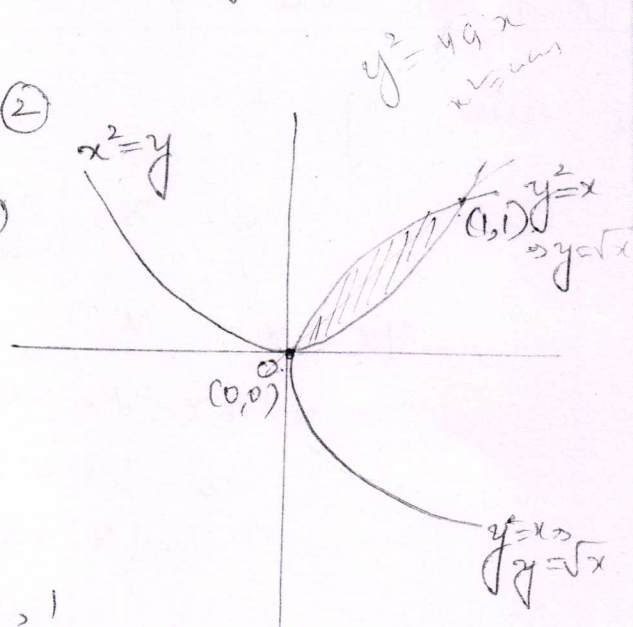 y² = 4a x
②
x² = y
)
y² = x
(1,1)
⇒ y = √x
O
(0,0)
y² = x ⇒
y = √x
, 1